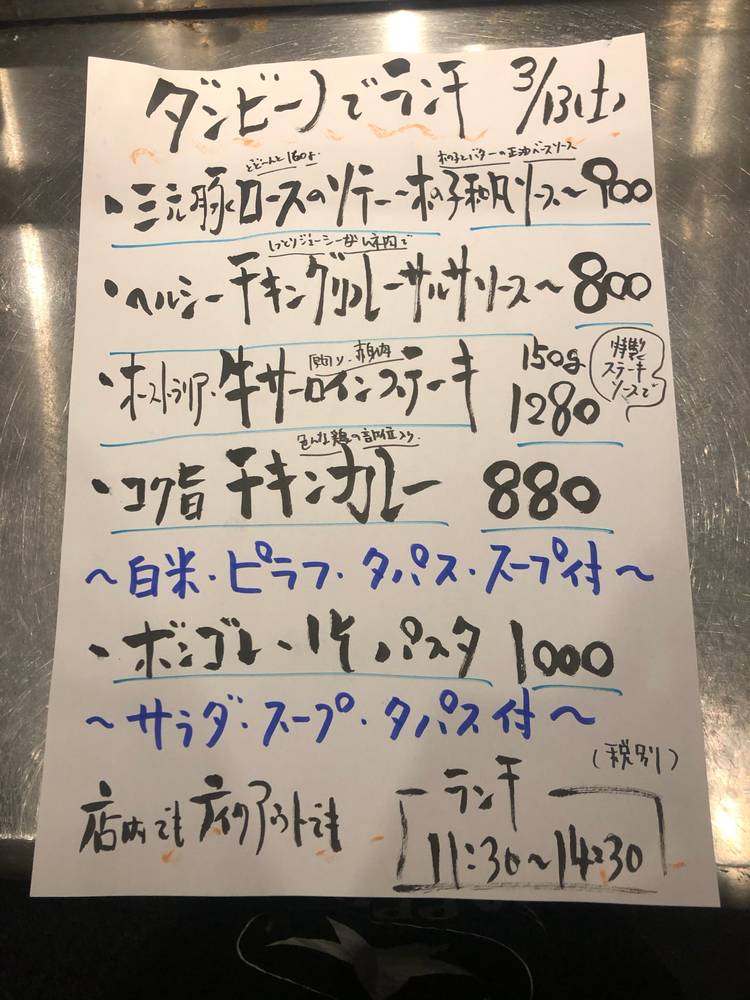 ダンビーノでランチ 3/13(土)
どどーんと160g
木の子とバターの正油ベースソース
・三元豚ロースのソテー〜木の子和風ソース〜 900
しっとりジューシーなムネ肉で
・ヘルシーチキングリル〜サルサソース〜 800
厚切り、赤身肉
・オーストラリア・牛サーロインステーキ 150g 1280
特製ステーキソースで
色んな鶏の部位入り
・コク旨チキンカレー 880
〜白米・ピラフ・タパス・スープ付〜
・ボンゴレ・パスタ 1000
〜サラダ・スープ・タパス付〜
(税別)
店内でも テイクアウトでも
ランチ
11:30〜14:30